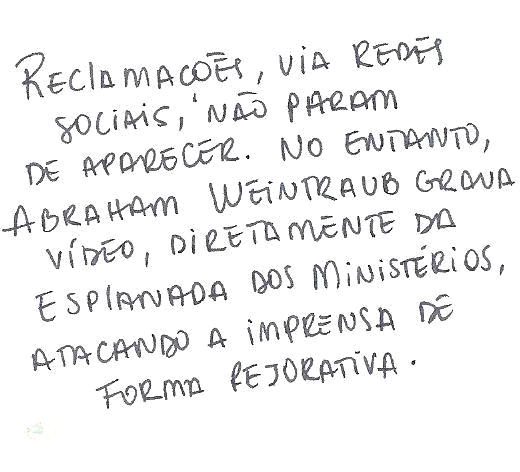 RECLAMACOES, VIA REDES
SOCIAIS, NÃO PARAM
DE APARECER. NO ENTANTO,
ABRAHAM WEINTRAUB GRAVA
VÍDEO, DIRETAMENTE DA
ESPLANADA DOS MINISTÉRIOS,
ATACANDO A IMPRENSA DE
FORMA PEJORATIVA.